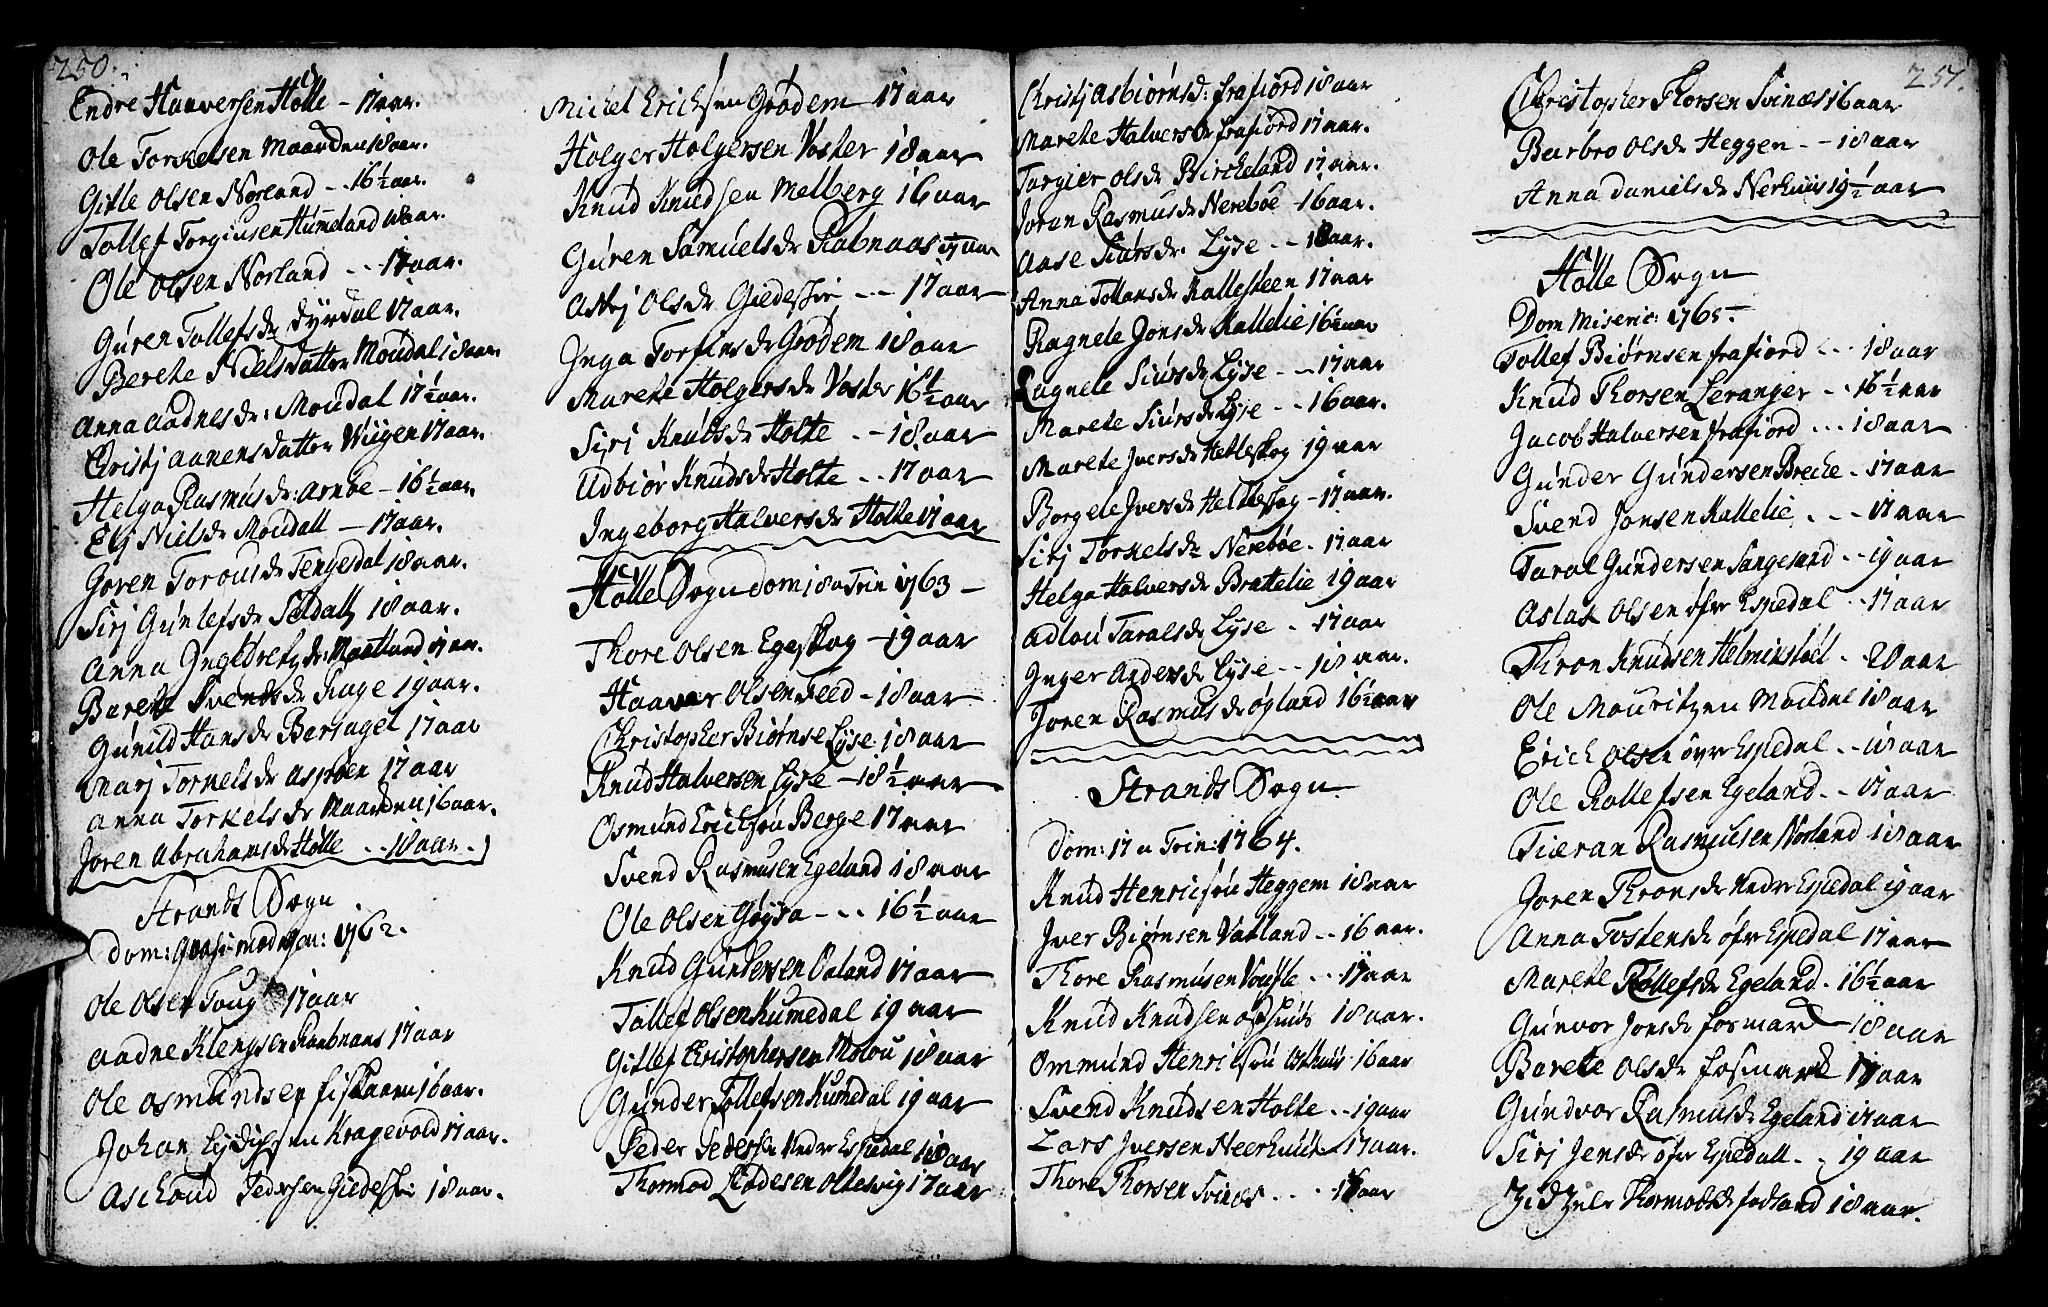 250.
Endre Haaversen Hølle - 17 aar.
Ole Torkelsen Maanden 18 aar.
Gitle Olsen Norland - - 16½ aar.
Tollef Torgiusen Hummeland 18 aar.
Ole Olsen Norland - - 17 aar.
Guren Tollefsdr Dyrdal 17 aar.
Berete Niels datter Moudal 18 aar.
Anna Aadnesdr: Moudal 17½ aar.
Christj Aanens datter Wiigen 17 aar.
Helga Rasmusdr: Arnøe - 16½ aar.
Elj Nielsdr Moudall - 17 aar.
Goren Torousdr Tengesdal 18 aar.
Sirj Gunlefsdr Seldall 18 aar.
Anna Ingebretsdr: Maatland 17 aar.
Barete Svendsdr Rage 19 aar.
Gunild Hansdr Bersagel 17 aar
Marj Torkelsdr Aspøen 17 aar
Anna Torkelsdr Maanden 16 aar.
Joren Abrahamsdr Hølle - - 18 aar.
Strands Sogn
Dom: Qvasimodogen: 1762.
Ole Olsen Toug 17 aar
Aadne Klengsen Raabnaas 17 aar
Ole Osmundsen Fiskaaen 16 aar.
Johan Kragevold 17 aar.
Aschoud Pedersen 18 aar.
Michel Erichsen Grødem 17 aar
Holger Holgersen Voster 18 aar
Knud Knudsen Melberg 16 aar
Guren Samuelsdr Rabnaas 17 aar
Astrj Olsdr - - - 17 aar
Inga Torfinsdr Grødem 18 aar
Marete Holgersdr Voster 16½ aar
Sirj Knudsdr Holte - - 18 aar
Udbiør Knudsdr Holte - - 17 aar
Ingeborg Halversdr Holte 17 aar
Hølle Sogn Dom 18 a Trin 1763 -
Thore Olsen Egeskog - 19 aar
Haaver Olsen Feed - 18 aar
Christopher Biørnse Lyse 18 aar
Knud Halversen Lyse - 18½ aar
Osmund Erichsøn Berge 17 aar
Svend Rasmusen Egeland 18 aar
Ole Olsen Gøysa - - - 16½ aar
Knud Gundersen Oaland 17 aar
Tollef Olsen Kumedal 19 aar
Gitlef Christophersen 18 aar
Gunder Tollefsen Kumedal 19 aar
Peder Pedersen Nedre Espedal 18 aar
Thormod Oltesvig 17 aar
251.
Christj Asbiørnsd: Frafiord 18 aar
Marete Halversdr Frafiord 17 aar.
Targier Olsdr Birckeland 17 aar.
Joran Rasmusdr Nerebøe - 16 aar.
Aase Siursdr. Lyse - - 18 aar.
Anna Tollaksdr Kallesteen 17 aar
Ragnele Jonsdr Kallelie 16½ aar
Lagnete Siursdr Lyse - - 17 aar
Marete Siursdr Lyse - - 16 aar.
Marete Iversdr Helleskog 19 aar
Borgele Iversdr Helleskog - 17 aar.
Sirj Torkelsdr Nerebøe. 17 aar
Helga Halversdr Brattelie 19 aar
Adlou Taralsdr Lyse - 17 aar
Inger Andersdr Lyse - - 18 aar.
Joren Rasmusdr Øgland 16½ aar
Strands Sogn
Dom: 17 a Trin: 1764.
Knud Henricsøn Heggem 18 aar
Iver Biørnsen Vatland - - 16 aar.
Thore Rasmusen - - 17 aar
Knud Knudsen 18 aar.
Ommund Henricsøn 16 aar
Svend Knudsen Holte - - 19 aar
Lars Iversen Neerhuus 17 aar.
Thore Thorsen Svines - - - 18 aar
Christopher Thorsen Svines 16 aar
Barbro Olsdr Heggen - - 18 aar
Anna Danielsdr Nerhuus 19½ aar
Hølle Sogn
Dom Miseric: 1765 -
Tollef Biørnsen Frafiord - - - 18 aar
Knud Thorsen Leranger - - 16½ aar
Jacob Halversen Frafiord - - - 18 aar
Gunder Gundersen Brecke - 17 aar
Svend Jonsen Kallelie - - - 17 aar
Taral Gundersen Sangesand - - 19 aar
Aslak Olsen Øfr Espedal - - 17 aar
Thron Knudsen Helmikstøl - 20 aar
Ole Mouritzen Moudal 18 aar
Erich Olsen Øvr Espedal - - 18 aar
Ole Rollefsen Egeland - - 17 aar
Tiæran Rasmusen Norland 18 aar
Joren Thronsdr Nedr Espedal 19 aar
Anna Tostensdr Øfr Espedal 17 aar
Marete Rollefsdr Egeland - 16½ aar
Gunvor Jonsdr Fosmark 18 aar
Barete Olsdr Fosmark 17 aar
Gundvor Rasmusdr Egeland 17 aar
Sirj Jensdr Øfr Espedall - - 19 aar
Thormodsdr Fodland 18 aar.